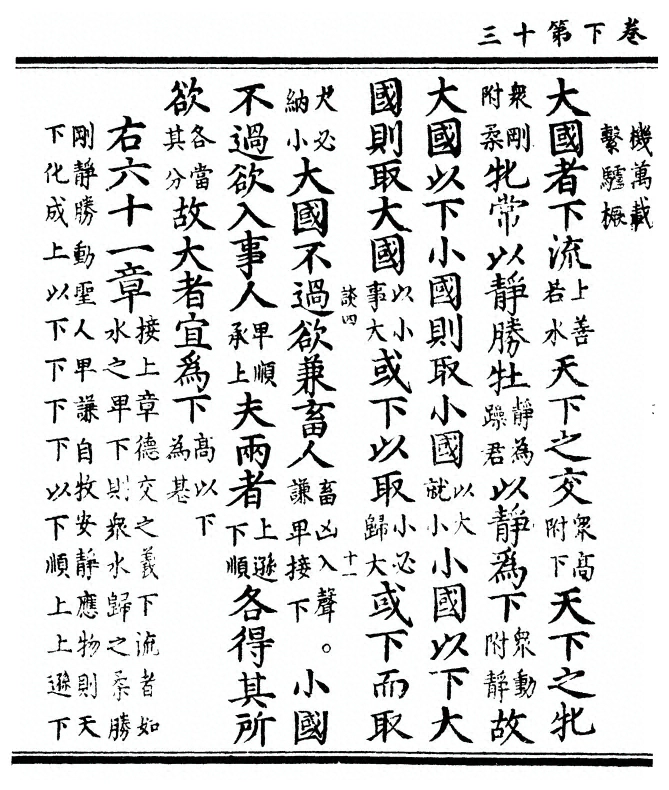 卷下第十三
機萬載繫驢橛
大國者下流上善若水天下之交衆高附下天下之牝
衆剛附柔牝常以靜勝牡靜為躁君以靜爲下衆動附靜故
大國以下小國則取小國以大就小小國以下大
國則取大國以小事大或下以取小必歸大或下而取
談四 十一
大必納小大國不過欲兼畜人畜凶入聲。謙卑接下小國
不過欲入事人卑順承上夫兩者上遜下順各得其所
欲各當其分故大者宜爲下高以下為基
右六十一章接上章德交之義下流者如水之卑下則衆水歸之柔勝
剛靜勝動聖人卑謙自牧安靜應物則天下化成上以下下下下以下順上上遜下